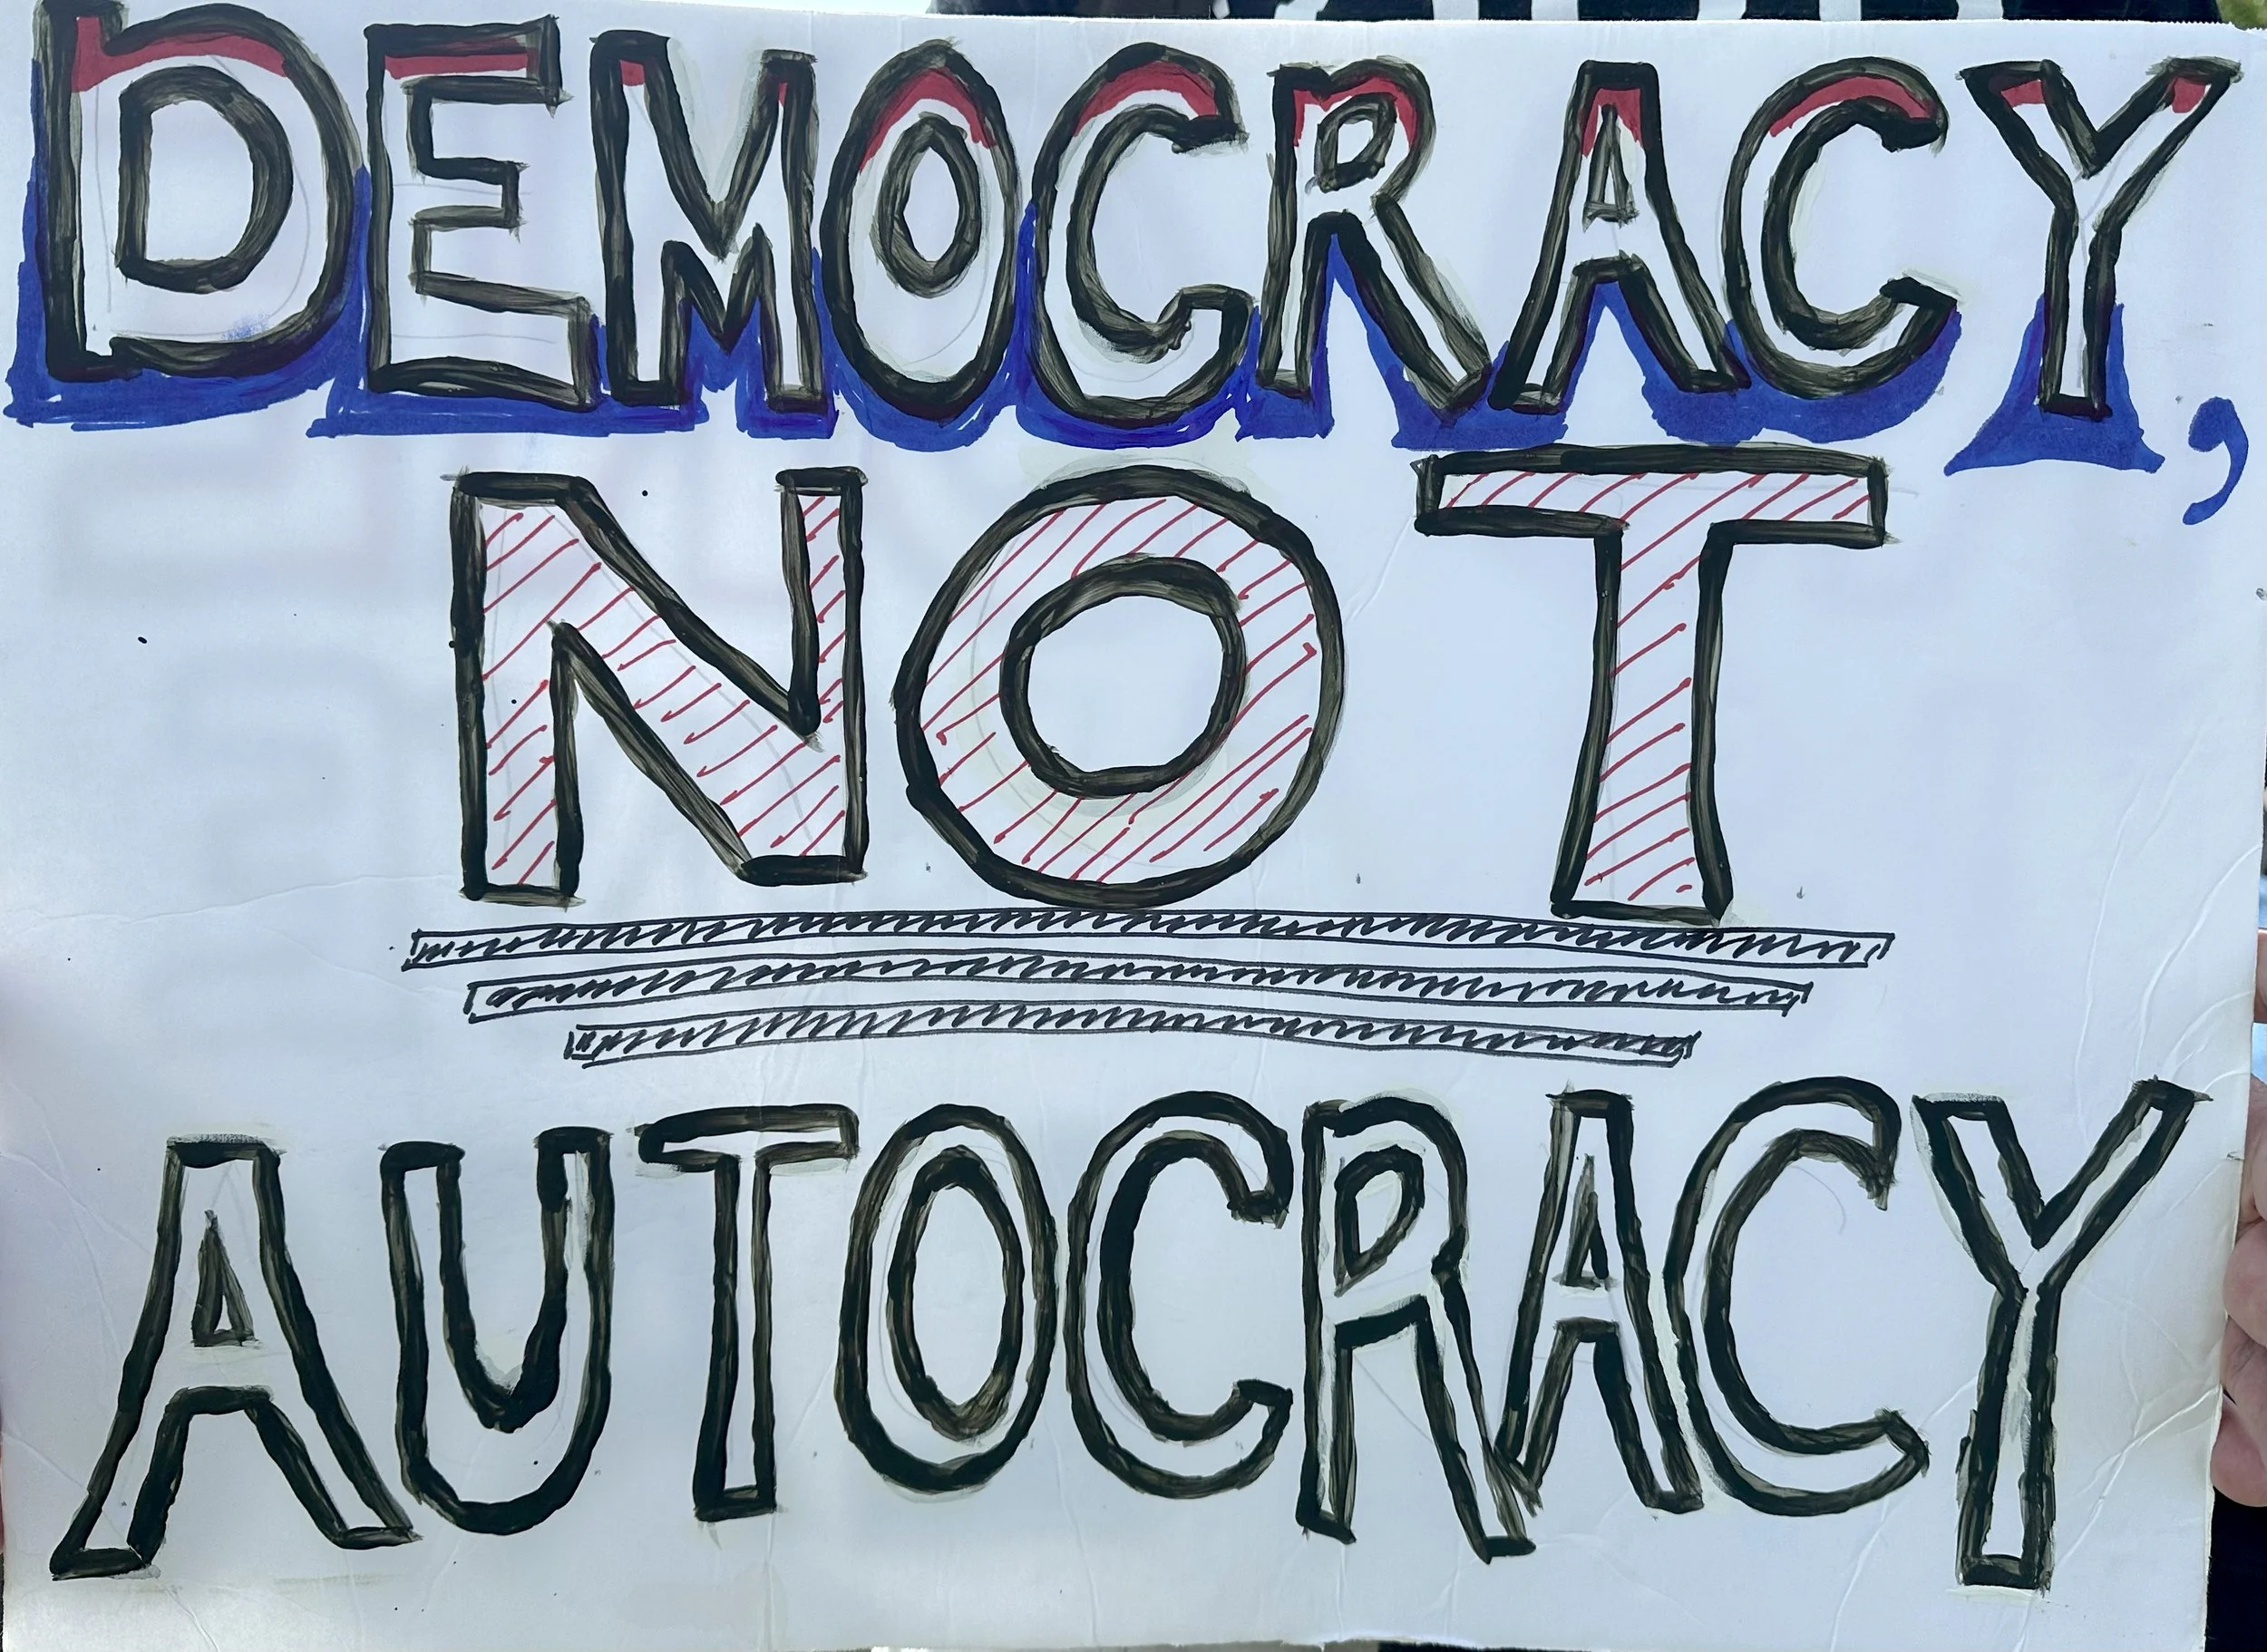 DEMOCRACY,
NOT
AUTOCRACY